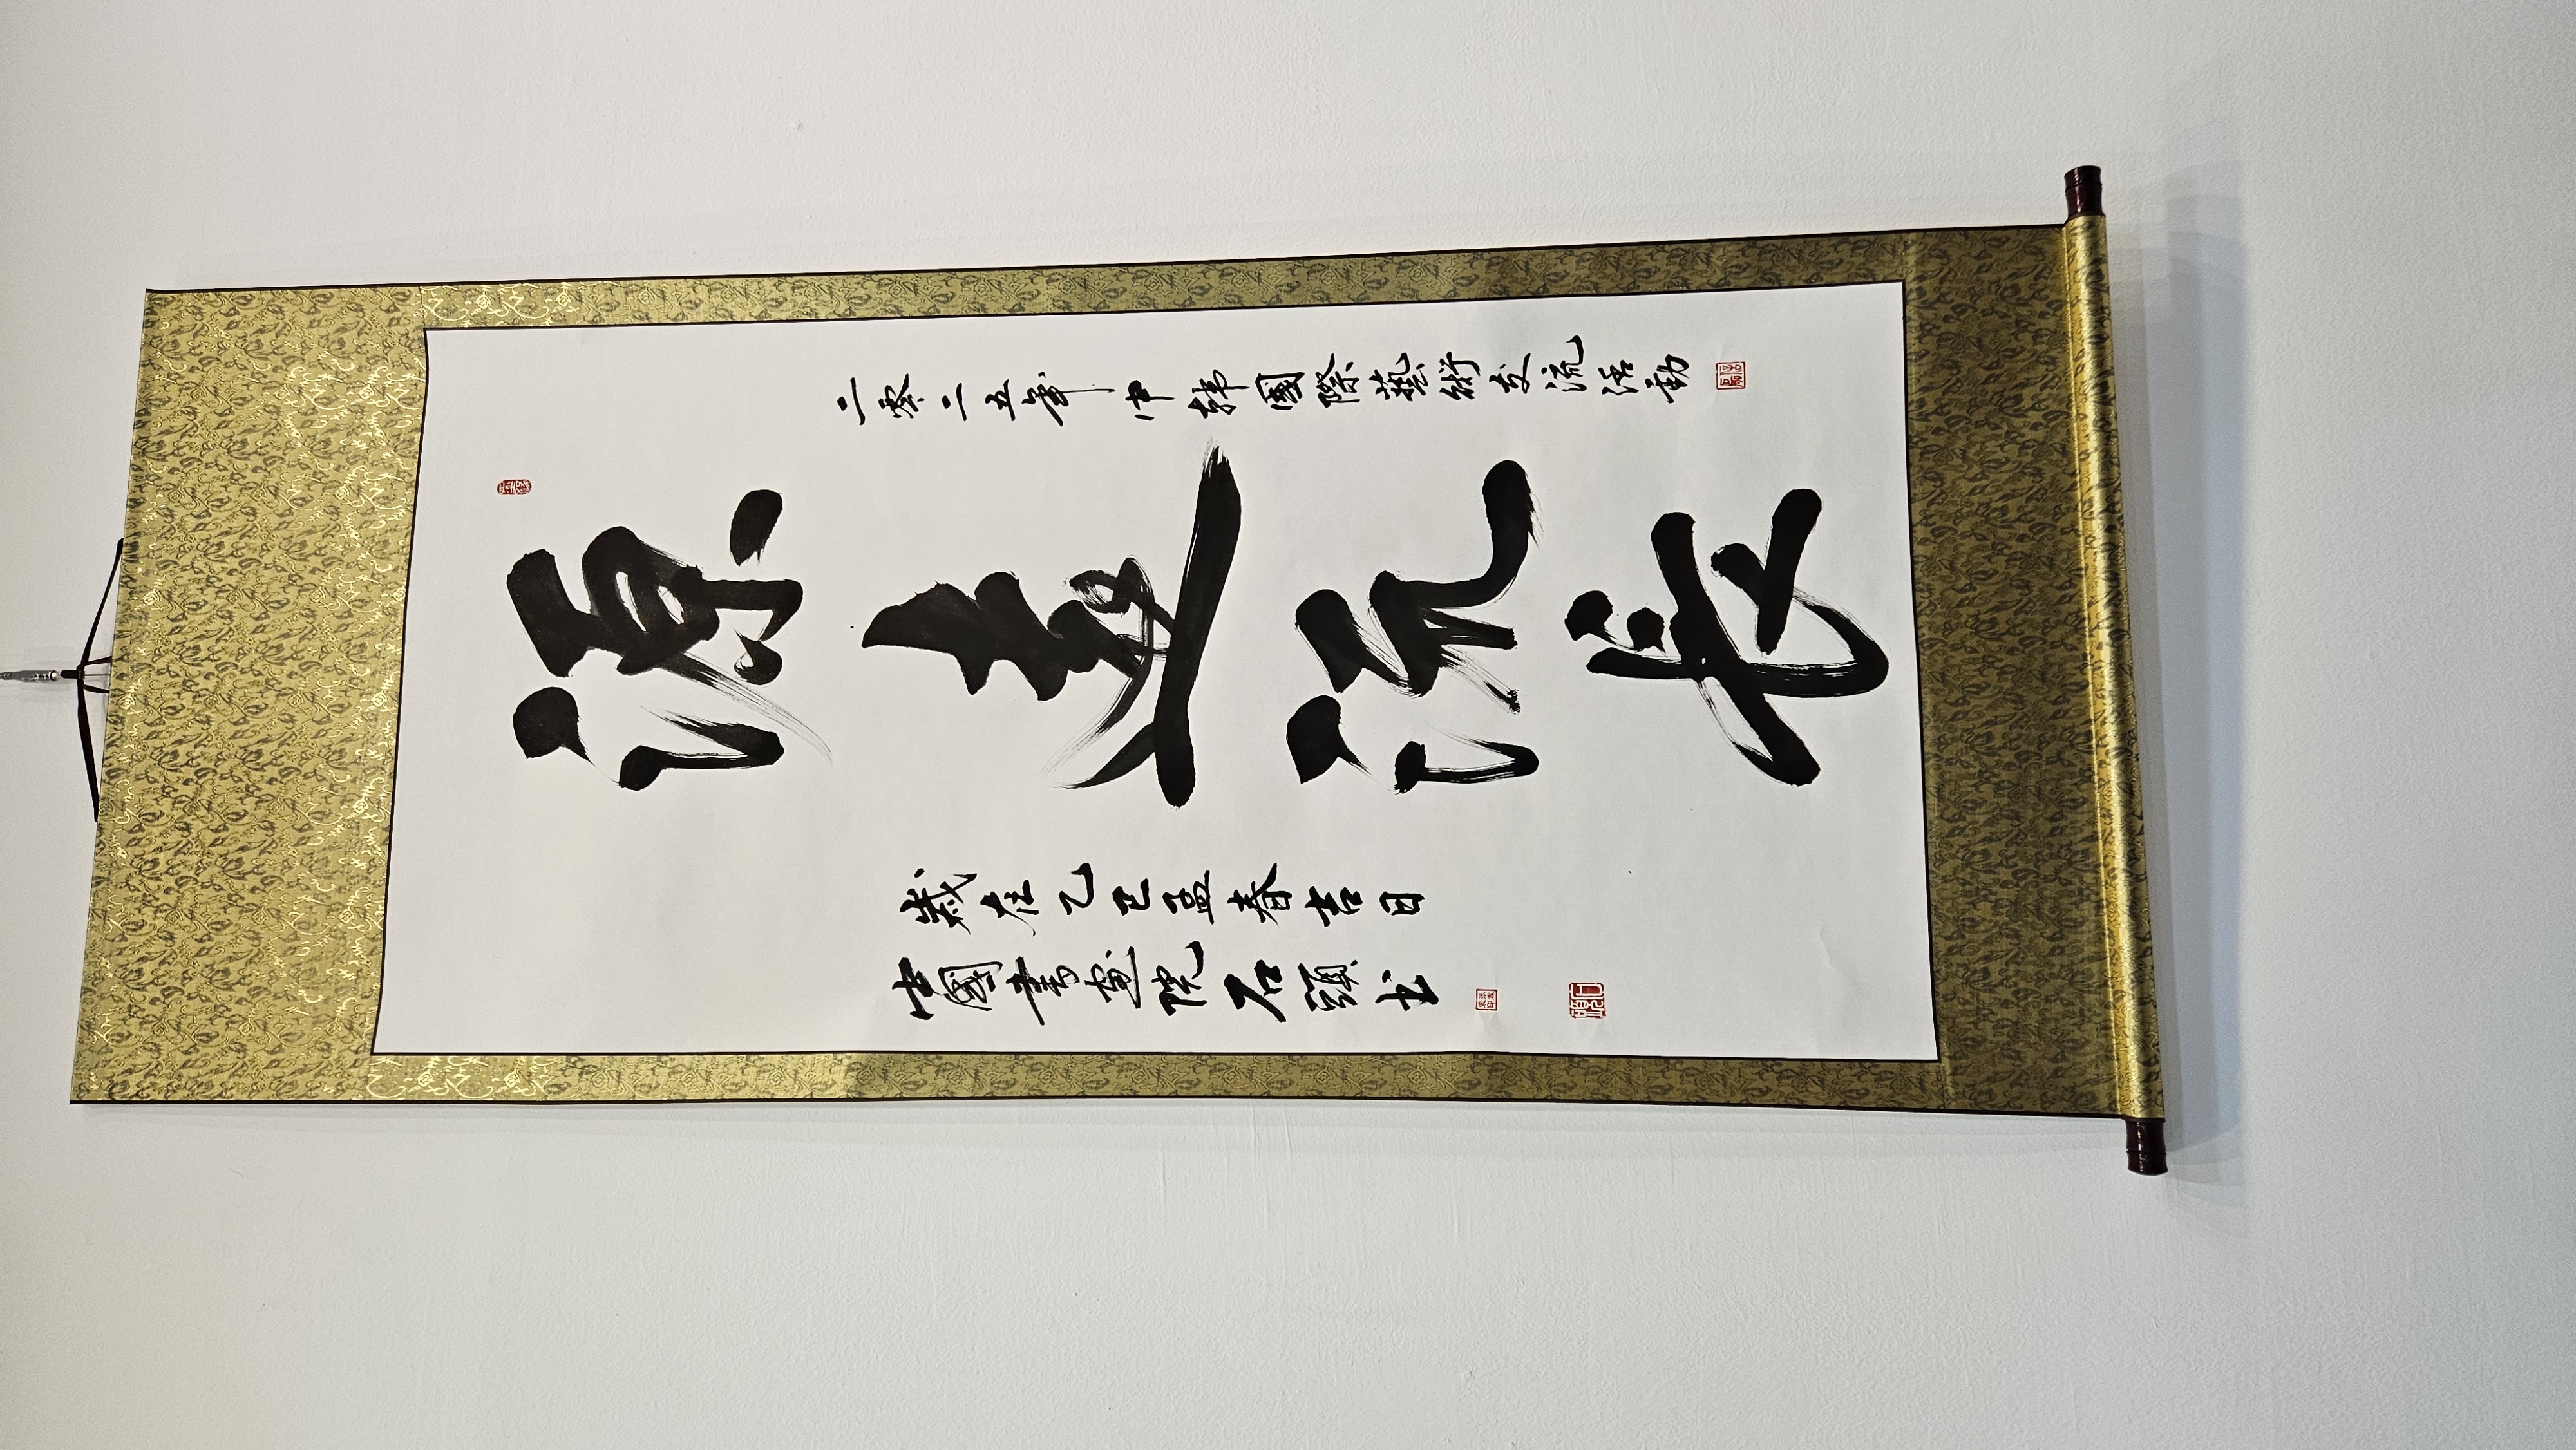 二零二五年中韩國際藝術交流活動
源遠流長
歲在乙巳孟春吉日
中國書畫院石頭書